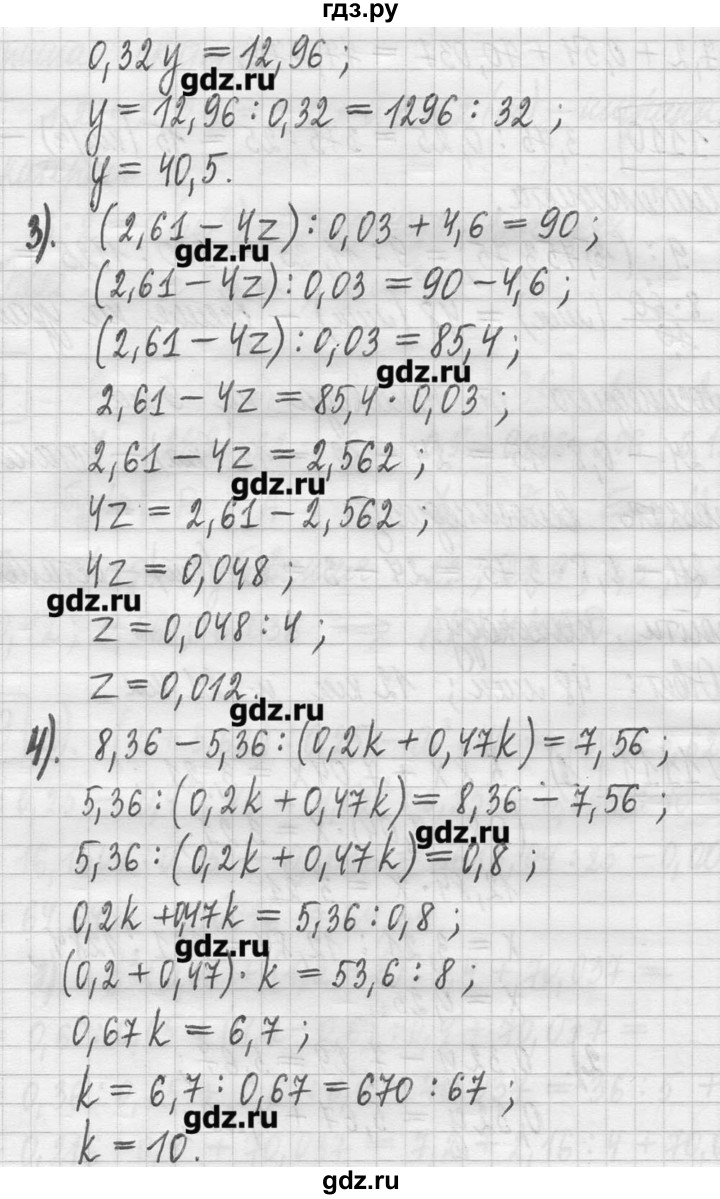 гдз.ру
0,32y = 12,96 ;
gdz.ru
y = 12,96 : 0,32 = 1296 : 32 ;
y = 40,5.
3). (2,61 - 4z) : 0,03 + 4,6 = 90 ;
gdz.ru
(2,61 - 4z) : 0,03 = 90 - 4,6 ;
(2,61 - 4z) : 0,03 = 85,4 ;
gdz.ru
2,61 - 4z = 85,4 · 0,03 ;
2,61 - 4z = 2,562 ;
gdz.ru
4z = 2,61 - 2,562 ;
4z = 0,048 ;
gdz.ru
z = 0,048 : 4 ;
z = 0,012.
gdz.ru
4). 8,36 - 5,36 : (0,2k + 0,47k) = 7,56 ;
5,36 : (0,2k + 0,47k) = 8,36 - 7,56 ;
gdz.ru
5,36 : (0,2k + 0,47k) = 0,8 ;
0,2k + 0,47k = 5,36 : 0,8 ;
gdz.ru
(0,2 + 0,47) · k = 53,6 : 8 ;
0,67k = 6,7 ;
k = 6,7 : 0,67 = 670 : 67 ;
gdz.ru
k = 10.
gdz.ru